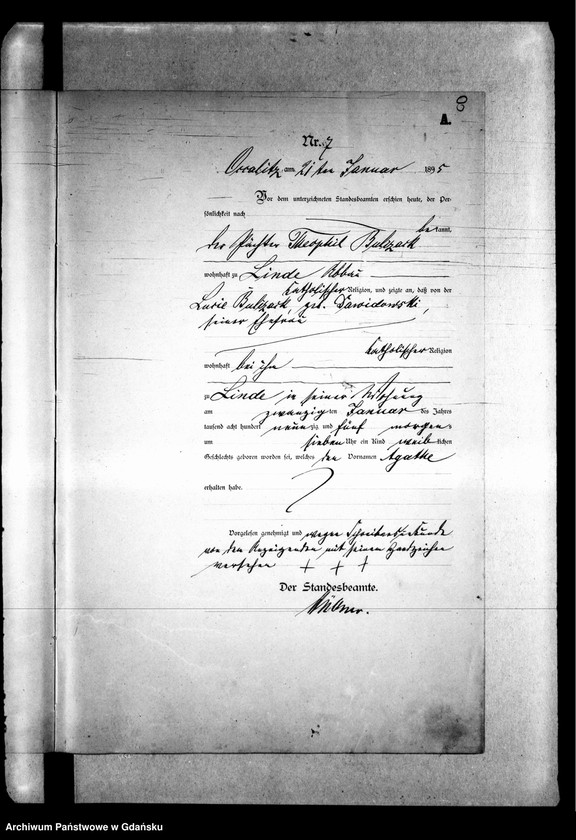 8
A.
Nr. 7
am 21ten Januar 1895
Vor dem unterzeichneten Standesbeamten erschien heute, der Per-
sönlichkeit nach
bekannt,
der Pächter Theophil Bulczack
wohnhaft zu Linde Abbau
katholischer Religion, und zeigte an, daß von der
Lucie Bulczack, geb. Dawidowski,
seiner Ehefrau
katholischer Religion
wohnhaft bei ihm
zu Linde in seiner Wohnung
am zwanzigsten Januar des Jahres
tausend acht hundert neunzig und fünf morgens
um sieben Uhr ein Kind weiblichen
Geschlechts geboren worden sei, welches den Vornamen Agathe
erhalten habe.
Vorgelesen genehmigt und wegen Schreibensunkunde
von dem Anzeigenden mit seinem Handzeichen
versehen + + +
Der Standesbeamte.
Archiwum Państwowe w Gdańsku